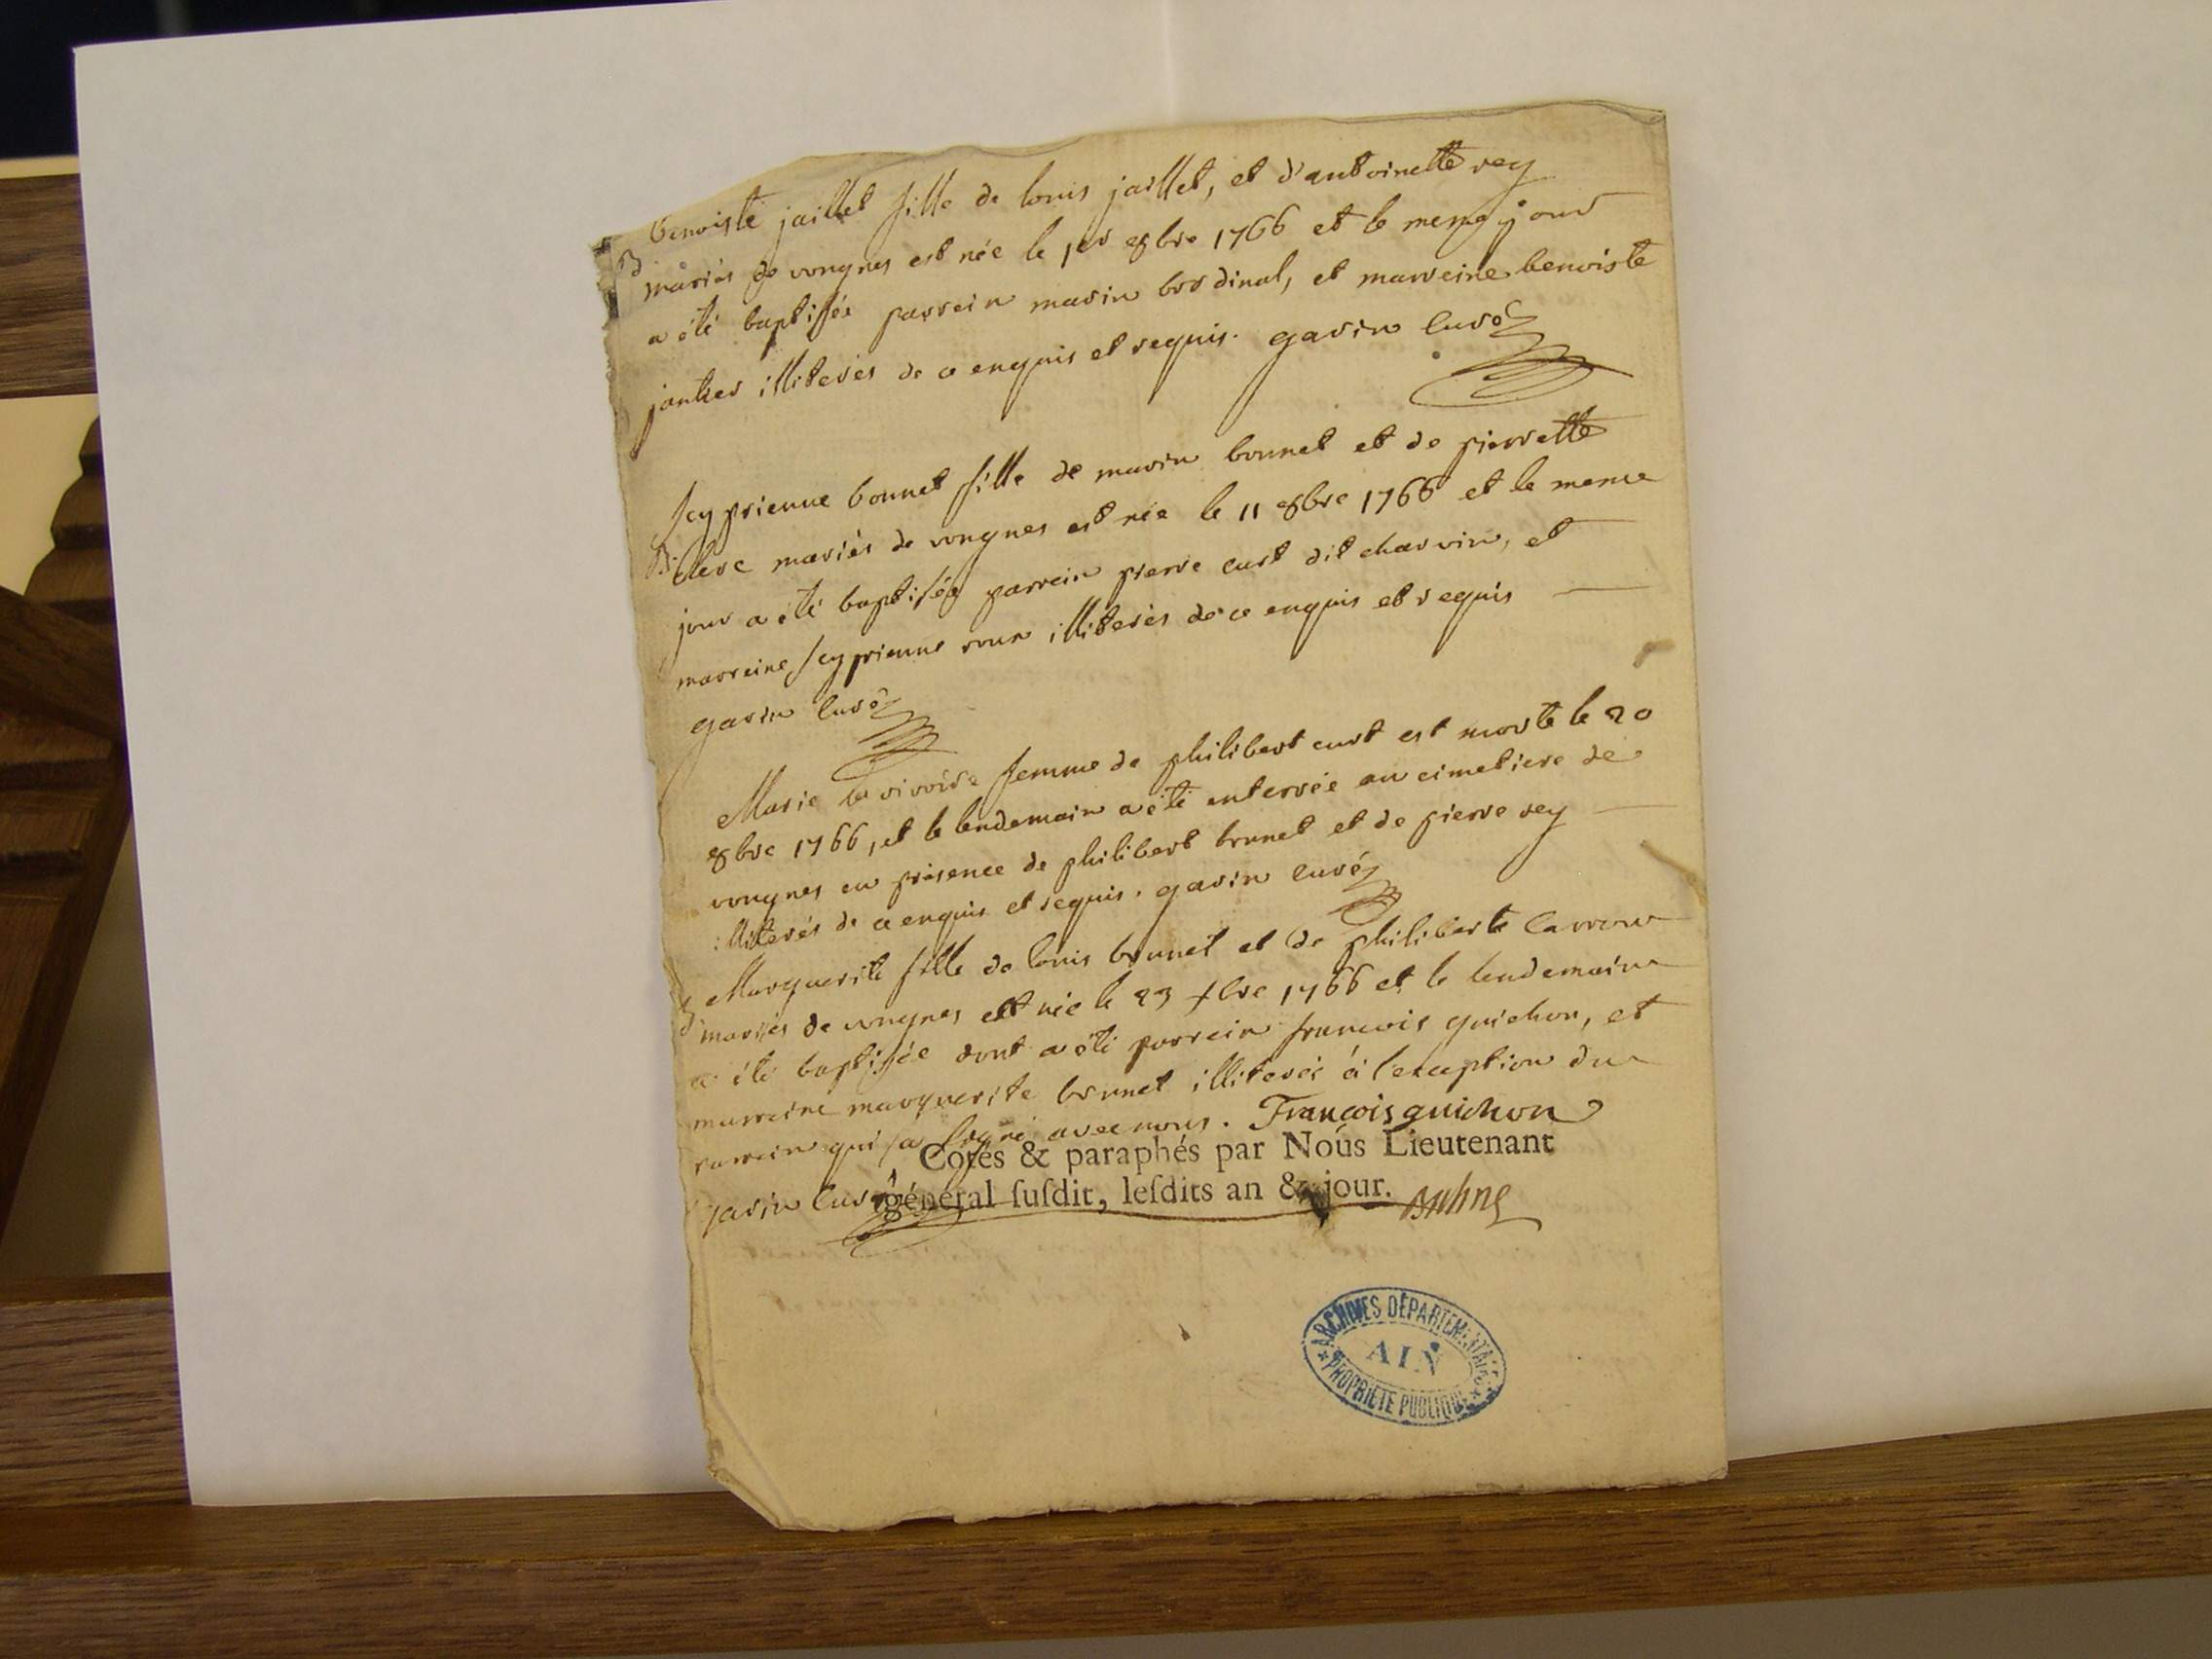 benoiste jaillet fille de louis jaillet, et d'antoinette rey
B mariés de vongnes est née le 1er 8bre 1766 et le meme jour
a été baptisée parrein marin bordinal, et marreine benoiste
illiterés de ce enquis et requis. gavin Curé
scyprienne bonnet fille de marin bonnet et de pierrette
B. clerc mariés de vongnes est née le 11 8bre 1766 et le meme
jour a été baptisée parrein pierre curt dit charvin, et
marreine scyprienne roux illiterés de ce enquis et requis
gavin Curé
Marie femme de philibert curt est morte le 20
8bre 1766, et le lendemain a été enterrée au cimetiere de
vongnes en présence de philibert brunet et de pierre rey
illiterés de ce enquis et requis. gavin curé
B Marguerite fille de louis brunet et de philiberte Carron
mariés de vongnes est née le 23 xbre 1766 et le lendemain
a été baptisée dont a été parrein francois guichon, et
marreine marguerite brunet illiterés à l'exception du
parrein qui a signé avec nous. François guichon
Cotés & paraphés par Nous Lieutenant
gavin Curé
général ſuſdit, leſdits an & jour.
ARCHIVES DÉPARTEMENTALES
AIN
PROPRIÉTÉ PUBLIQUE